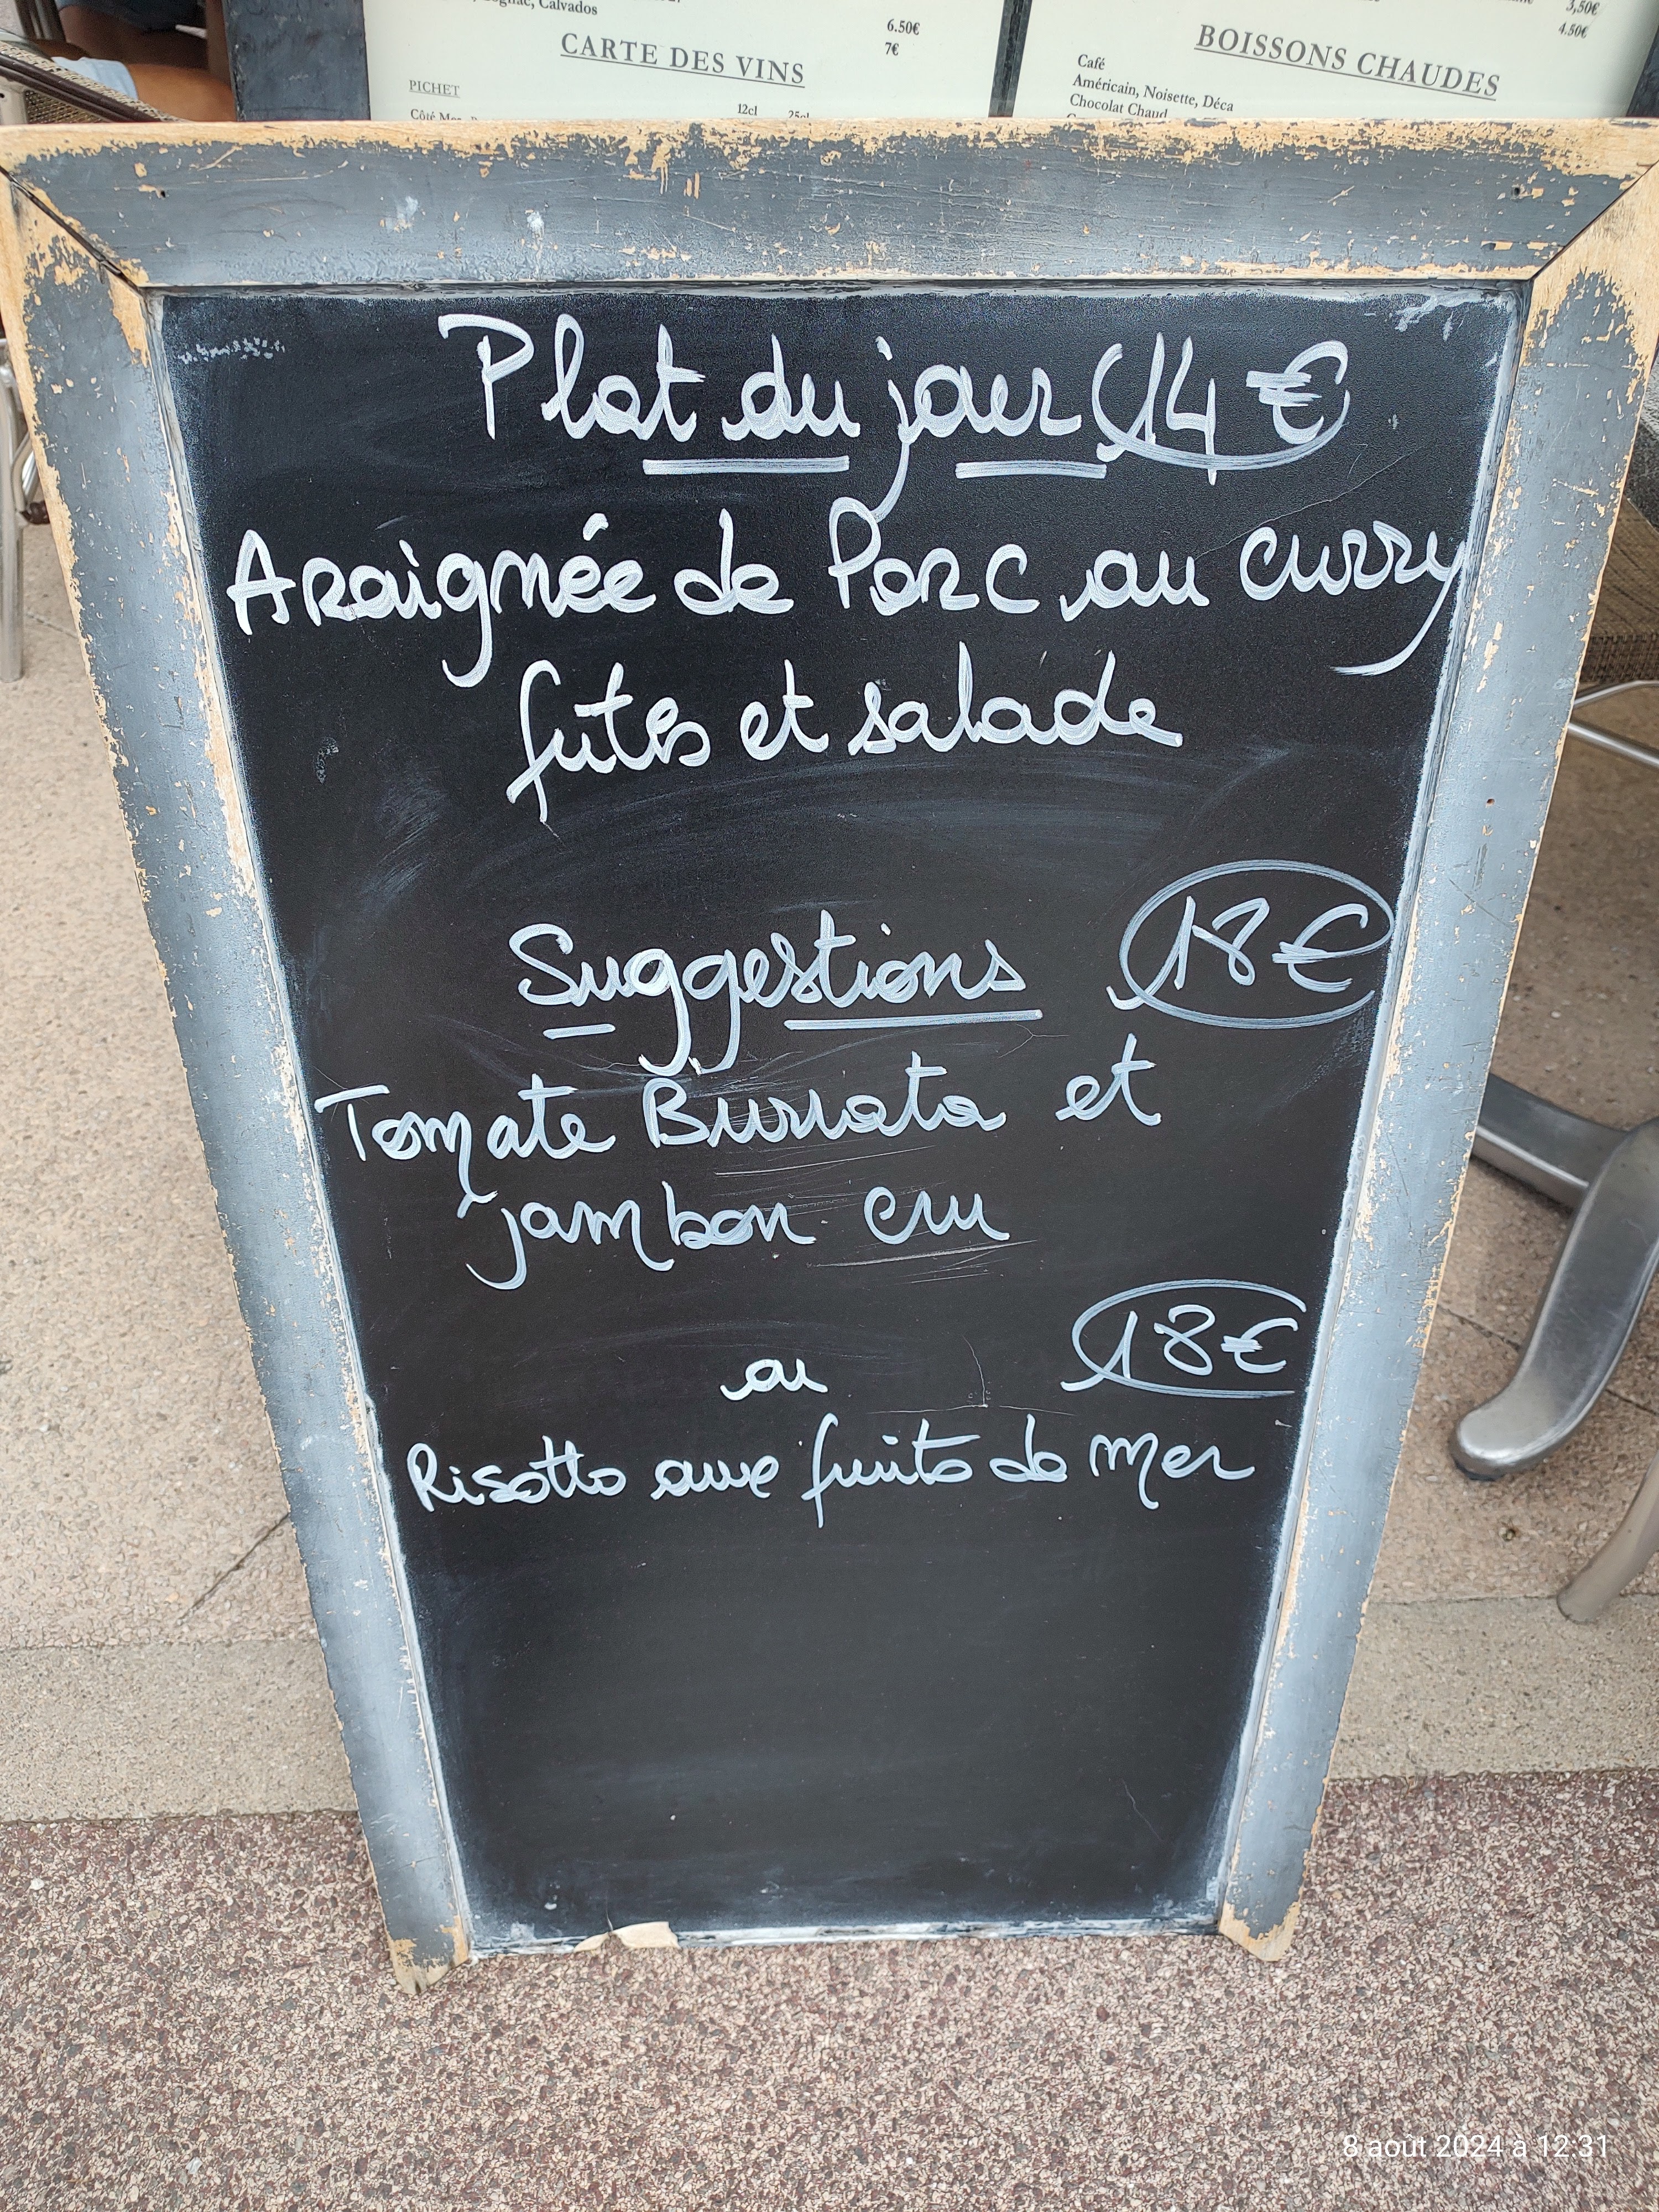 Cognac, Calvados
6.50€
7€
CARTE DES VINS
PICHET
12cl 25cl
3,50€
4.50€
BOISSONS CHAUDES
Café
Américain, Noisette, Déca
Chocolat Chaud
Plat du jour 14 €
Araignée de Porc au curry
frites et salade
Suggestions 18€
Tomate Burrata et
jambon cru
ou 18€
Risotto aux fruits de mer
8 août 2024 à 12:31